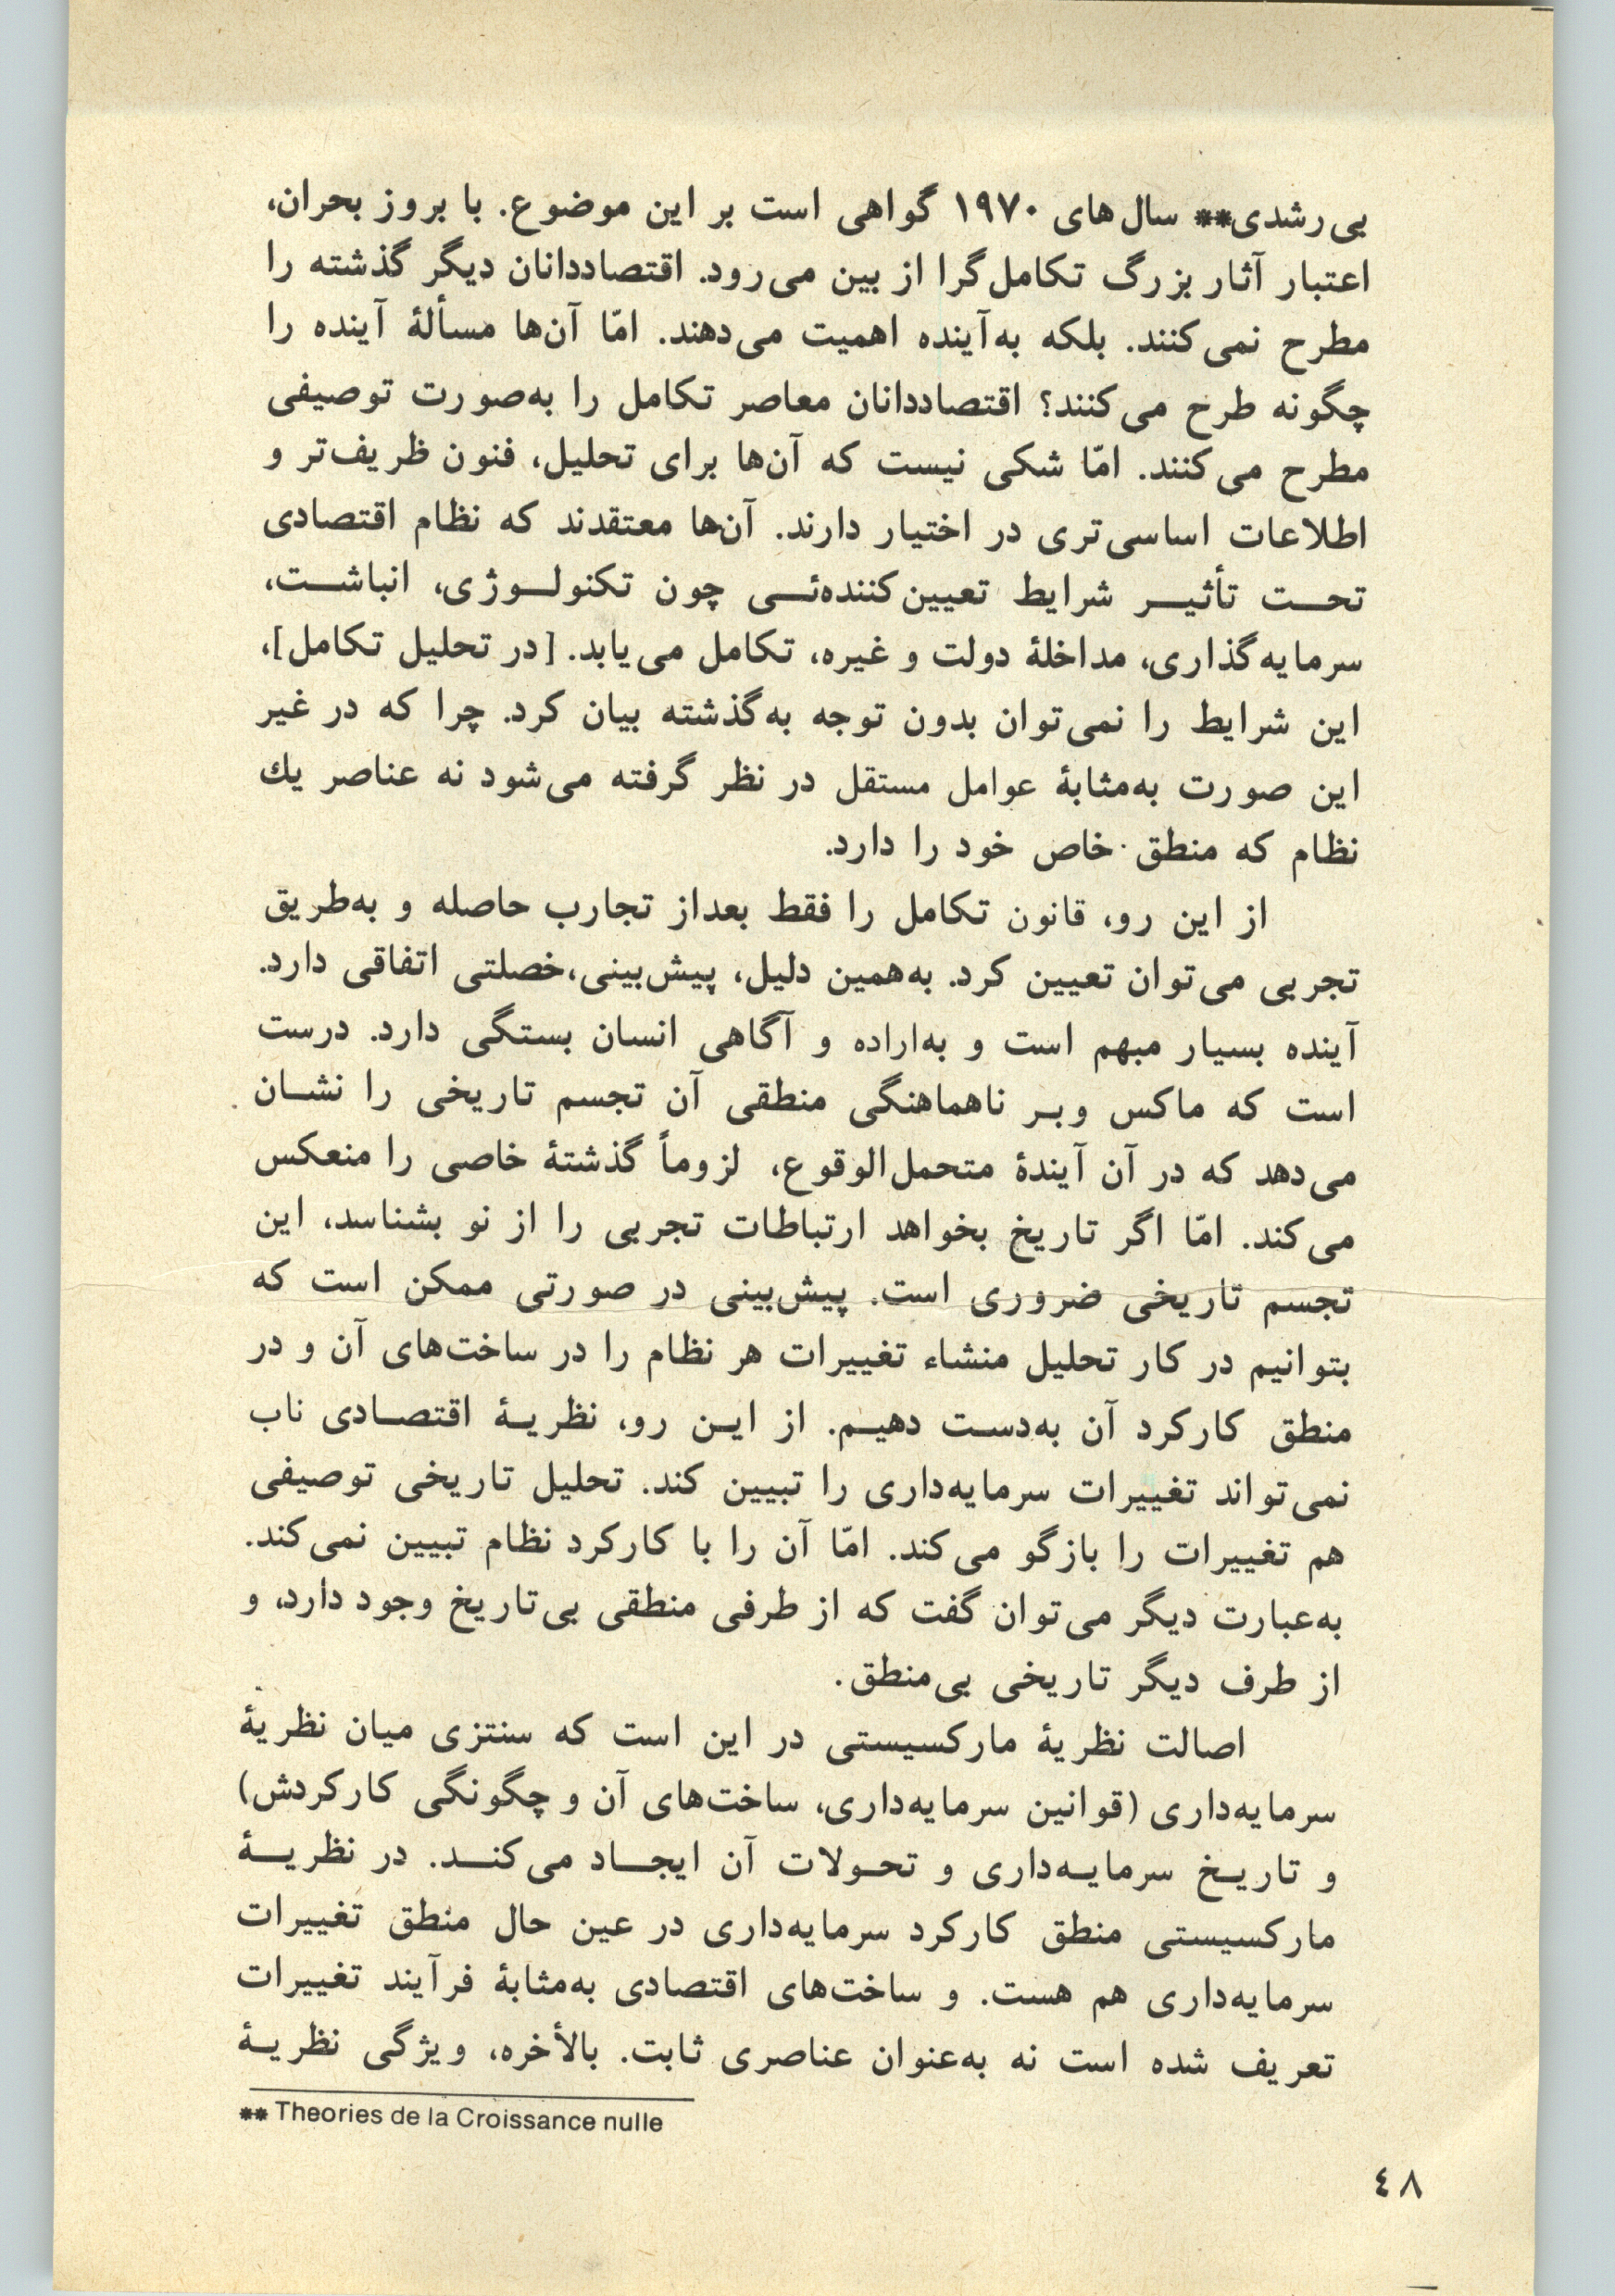 بی‌رشدی** سال‌های ۱۹۷۰ گواهی است بر این موضوع. با بروز بحران،
اعتبار آثار بزرگ تکامل‌گرا از بین می‌رود. اقتصاددانان دیگر گذشته را
مطرح نمی‌کنند. بلکه به‌آینده اهمیت می‌دهند. امّا آن‌ها مسألهٔ آینده را
چگونه طرح می‌کنند؟ اقتصاددانان معاصر تکامل را به‌صورت توصیفی
مطرح می‌کنند. امّا شکی نیست که آن‌ها برای تحلیل، فنون ظریف‌تر و
اطلاعات اساسی‌تری در اختیار دارند. آن‌ها معتقدند که نظام اقتصادی
تحت تأثیر شرایط تعیین‌کننده‌ئی چون تکنولوژی، انباشت،
سرمایه‌گذاری، مداخلهٔ دولت و غیره، تکامل می‌یابد. [در تحلیل تکامل]،
این شرایط را نمی‌توان بدون توجه به‌گذشته بیان کرد. چرا که در غیر
این صورت به‌مثابهٔ عوامل مستقل در نظر گرفته می‌شود نه عناصر یك
نظام که منطق خاص خود را دارد.
از این رو، قانون تکامل را فقط بعداز تجارب حاصله و به‌طریق
تجربی می‌توان تعیین کرد. به‌همین دلیل، پیش‌بینی،خصلتی اتفاقی دارد.
آینده بسیار مبهم است و به‌اراده و آگاهی انسان بستگی دارد. درست
است که ماکس وبر ناهماهنگی منطقی آن تجسم تاریخی را نشان
می‌دهد که در آن آیندهٔ متحمل‌الوقوع، لزوماً گذشتهٔ خاصی را منعکس
می‌کند. امّا اگر تاریخ بخواهد ارتباطات تجربی را از نو بشناسد، این
تجسم تاریخی ضروری است. پیش‌بینی در صورتی ممکن است که
بتوانیم در کار تحلیل منشاء تغییرات هر نظام را در ساخت‌های آن و در
منطق کارکرد آن به‌دست دهیم. از این رو، نظریهٔ اقتصادی ناب
نمی‌تواند تغییرات سرمایه‌داری را تبیین کند. تحلیل تاریخی توصیفی
هم تغییرات را بازگو می‌کند. امّا آن را با کارکرد نظام تبیین نمی‌کند.
به‌عبارت دیگر می‌توان گفت که از طرفی منطقی بی‌تاریخ وجود دارد، و
از طرف دیگر تاریخی بی‌منطق.
اصالت نظریهٔ مارکسیستی در این است که سنتزی میان نظریهٔ
سرمایه‌داری (قوانین سرمایه‌داری، ساخت‌های آن و چگونگی کارکردش)
و تاریخ سرمایه‌داری و تحولات آن ایجاد می‌کند. در نظریهٔ
مارکسیستی منطق کارکرد سرمایه‌داری در عین حال منطق تغییرات
سرمایه‌داری هم هست. و ساخت‌های اقتصادی به‌مثابهٔ فرآیند تغییرات
تعریف شده است نه به‌عنوان عناصری ثابت. بالأخره، ویژگی نظریهٔ
** Theories de la Croissance nulle
٤٨